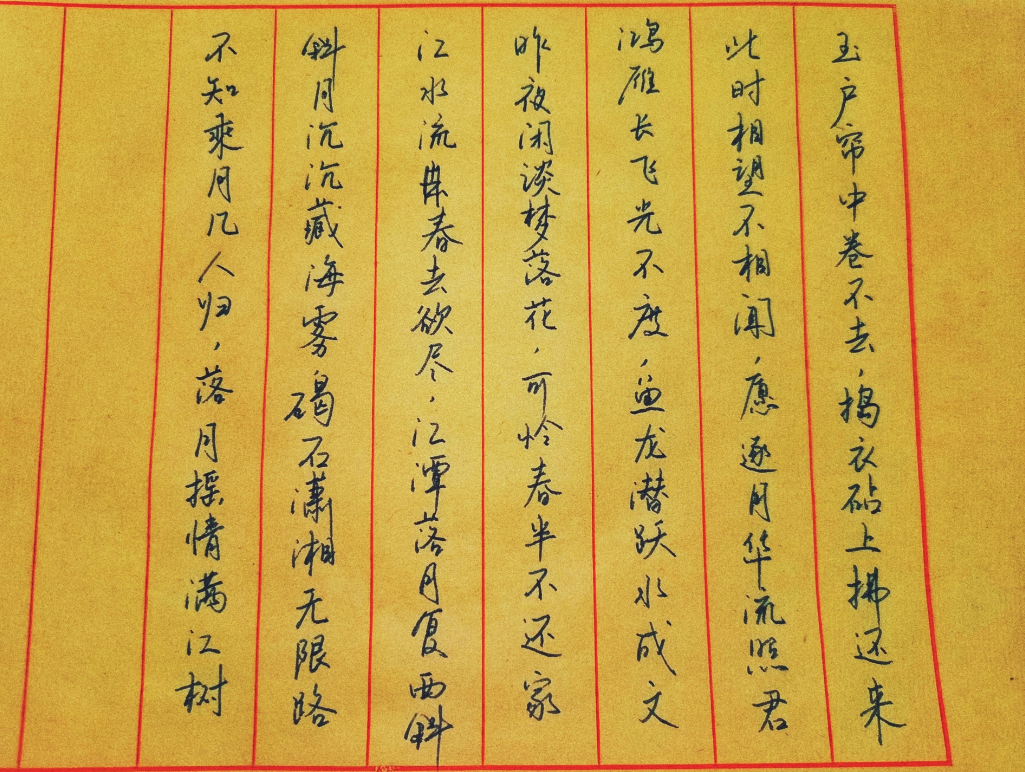 玉户帘中卷不去，捣衣砧上拂还来
此时相望不相闻，愿逐月华流照君
鸿雁长飞光不度，鱼龙潜跃水成文
昨夜闲淡梦落花，可怜春半不还家
江水流春去欲尽，江潭落月复西斜
斜月沉沉藏海雾碣石潇湘无限路
不知乘月几人归，落月摇情满江树